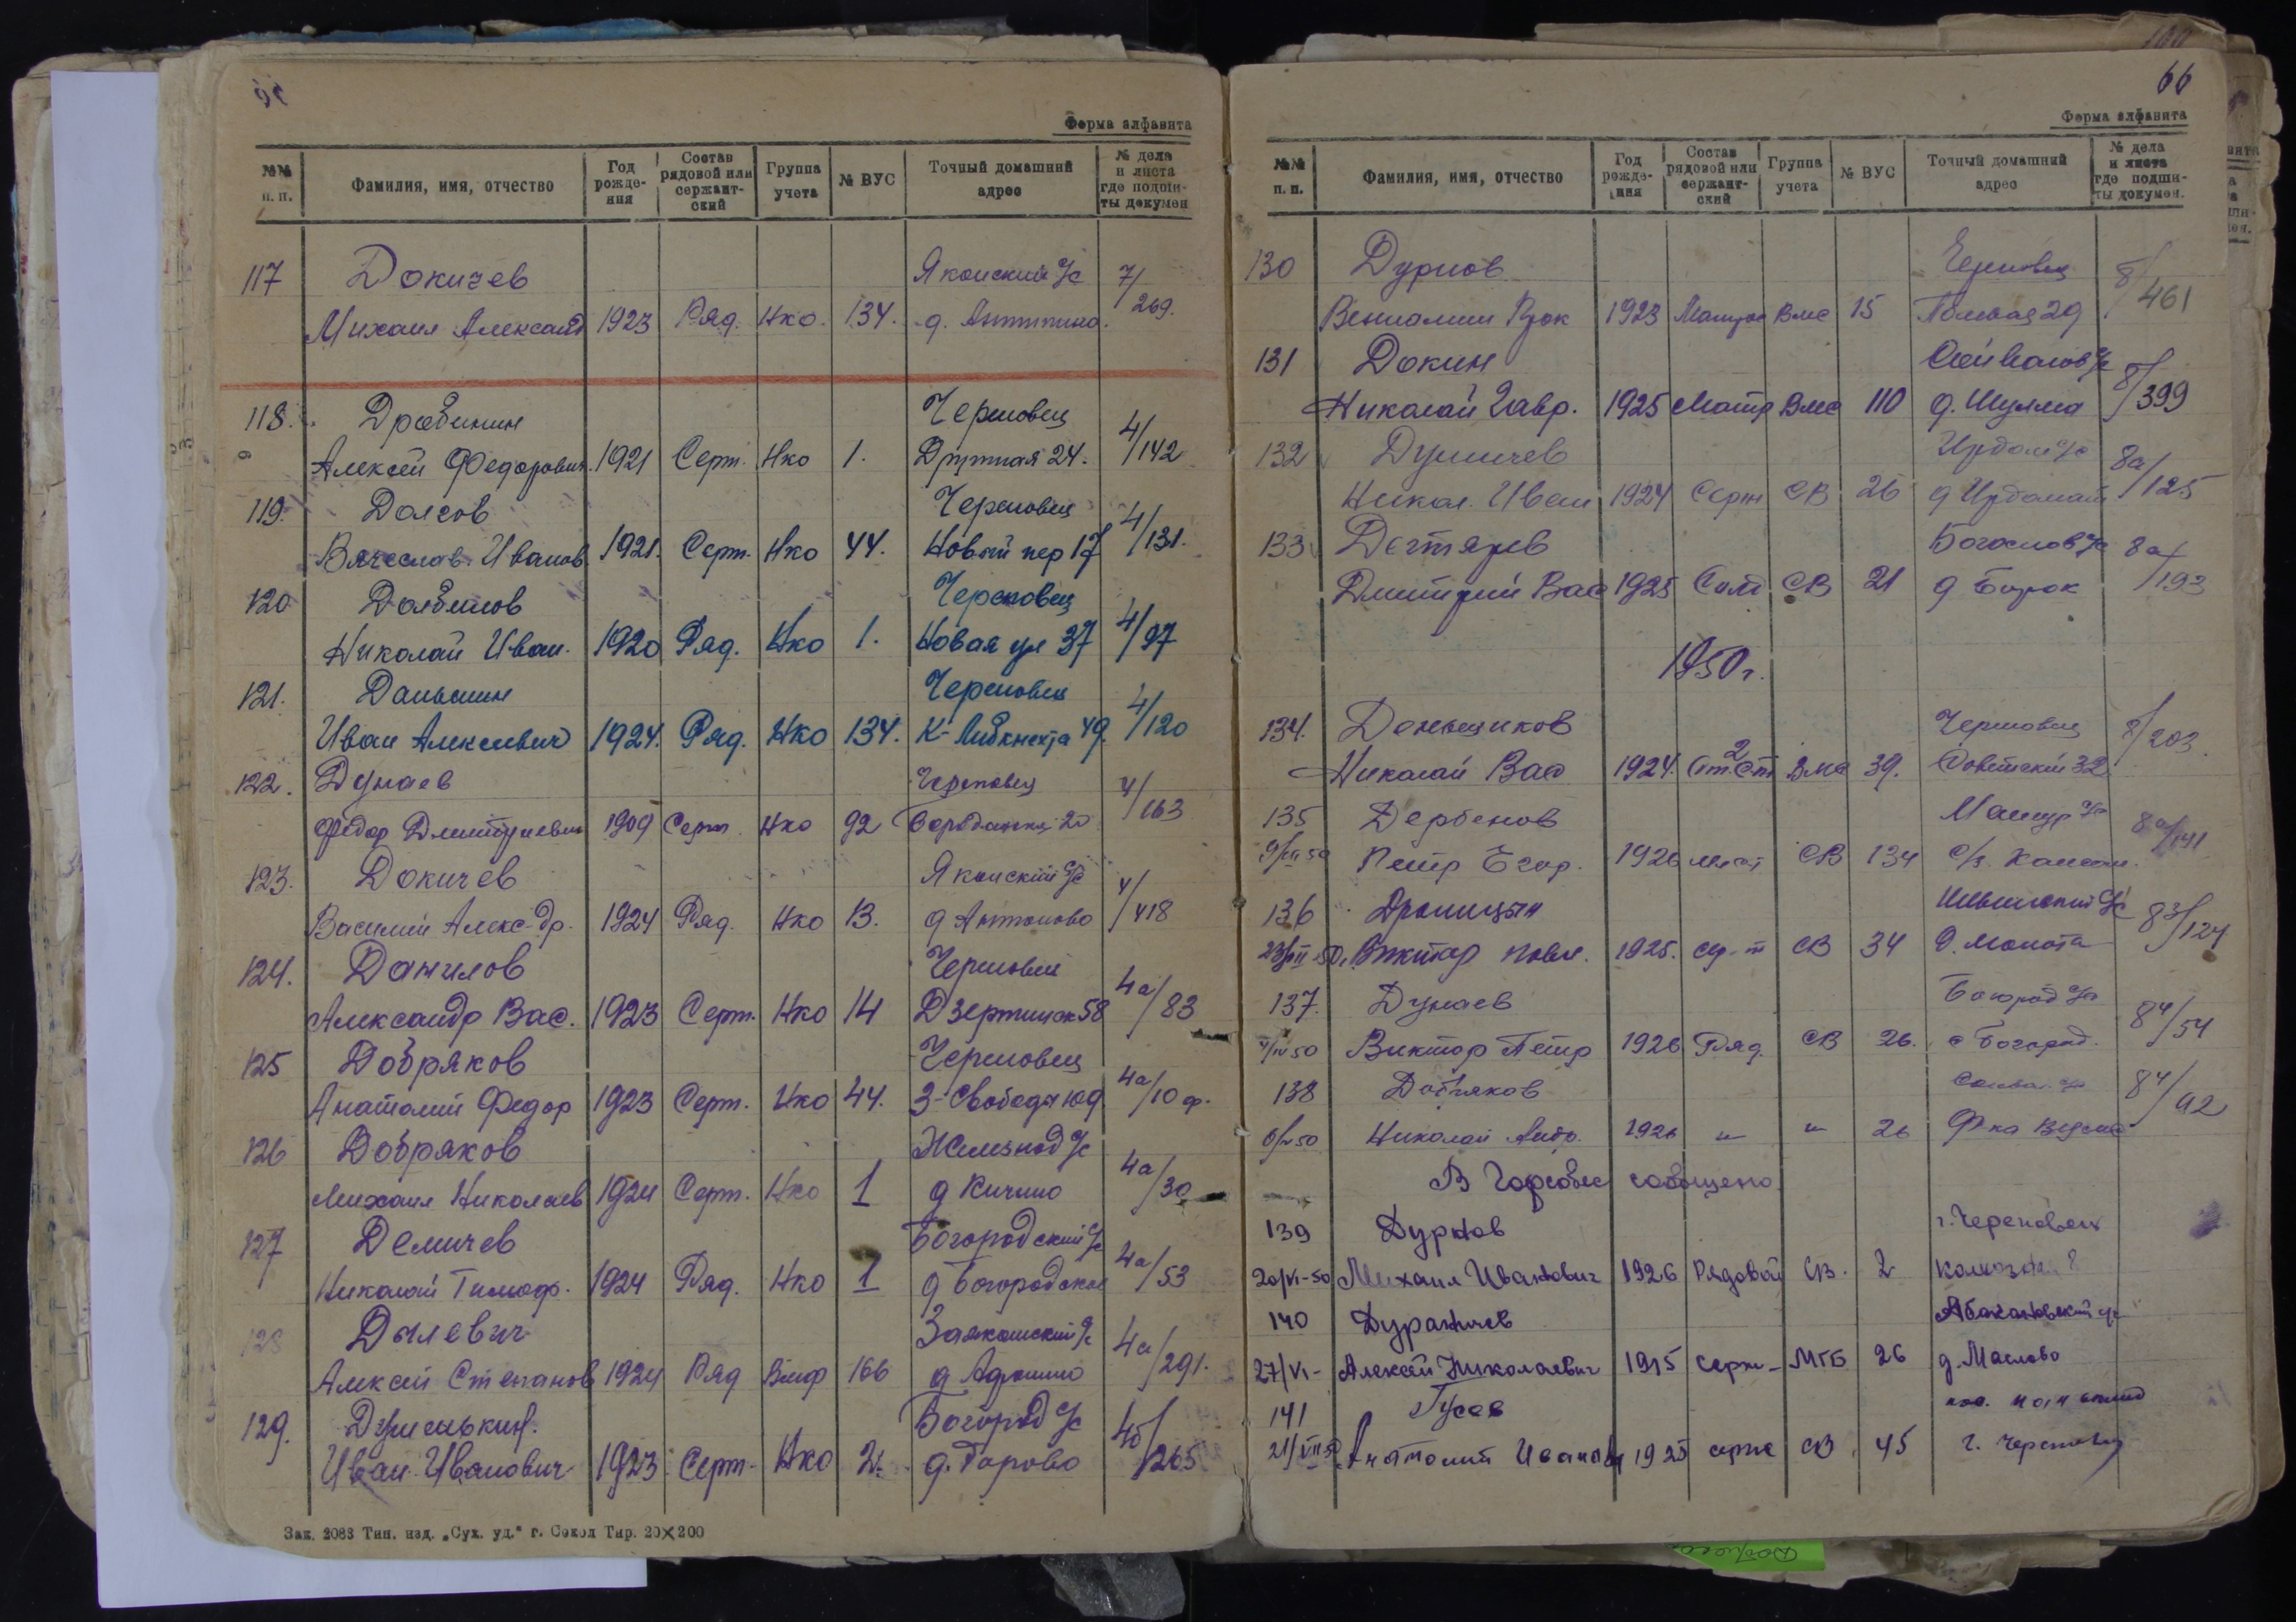 Форма алфавита
№№ п. п. Фамилия, имя, отчество Год рожде-ния Состав рядовой или сержант-ский Группа учета № ВУС Точный домашний адрес № дела и листа где подши-ты докумен
117 Докичев Яконский с/с 7/269.
Михаил Александ 1923 Ряд. Нко. 134. д.
118. Дробинин Череповец 4/142
Алексей Федорович 1921 Серж. Нко 1. 24.
119. Долгов Череповец 4/131.
Вячеслав Иванов. 1921. Серж. Нко 44. Новый пер 17
120 Долбилов Череповец 4/97
Николай Иван. 1920 Ряд. Нко 1. Новая ул 37
121. Даньшин Череповец 4/120
Иван Алексеевич 1924. Ряд. Нко 134. К-Либкнехта 49.
122. Дунаев Череповец 4/163
Федор Дмитриевич 1909 Серж. Нко 92 20
123. Докичев Яконский с/с 4/418
Василий Алекс-др. 1924 Ряд. Нко 13. д Антоново
124. Данилов Череповец 4а/83
Александр Вас. 1923 Серж. Нко 14 Дзержинск 58
125 Добряков Череповец 4а/10 ф.
Анатолий Федор 1923 Серж. Нко 44. 3-Свободы
126 Добряков Железнод с/с 4а/30
Михаил Николаев 1924 Серж. Нко 1 д Кичино
127 Демичев Богородский с/с 4а/53
Николай Тимоф. 1924 Ряд. Нко 1 д Богородское
128 Дылевич с/с 4а/291.
Алексей Степанов 1924 Ряд Вмф 166 д
129. Богород с/с 4б/265
Иван Иванович 1923. Серж. Нко 2. д.
Зак. 2083 Тип. изд. „Сух. уд.“ г. Сокол Тир. 20×200
66
Форма алфавита
№№ п. п. Фамилия, имя, отчество Год рожде-ния Состав рядовой или сержант-ский Группа учета № ВУС Точный домашний адрес № дела и листа где подши-ты докумен.
130 Дурнов Череповец 8/461
Вениамин 1923 Матрос Вмс 15 29
131 Докин с/с 8/399
Николай Гавр. 1925 Матр Вмс 110 д. Шулма
132 Ирдом с/с 8а/125
Никол. Иван 1924 Серж СВ 26 д
133 Дегтярев Богослов с/с 8а/193
Дмитрий Вас 1925 Солд СВ 21 д Борок
1950г.
134. Деньщиков Череповец 8/203
Николай Вас 1924. Ст. 2 ст Вмс 39. Советский 32
135 Дербенов с/с 8а/141
9/III 50 Петр Егор. 1926 СВ 134 с/з
136 Дроницын с/с 83/124
Виктор Павл. 1925. СВ 34 д.
137. Дунаев Богород с/с 84/54
4/IV 50 Виктор Петр 1926 Ряд. СВ 26. с Богород.
138 Добряков с/с 84/92
6/IV 50 Николай 1926 " " 26
В Горсовет сообщено
139 Дурнов г. Череповец
20/VI-50 Михаил Иванович 1926 Рядовой СВ. 2 8
140 Дураничев Абакановский с/с
27/VI- Алексей Николаевич 1915 серж- МГБ 26 д. Маслово
141 Гусев
21/VII 50 Анатолий Иванович 1925 серж СВ 45 г. Череповец